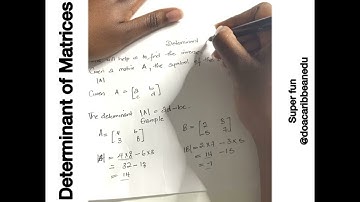 Determinant of Matrices
Determinant
will help us to find the inverse
Given a matrix A, the symbol of the
|A|
Given A = [a b
c d]
The determinant |A| = ad - bc
Example
A = [4 6
3 8]
= 4 x 8 - 6 x 3
= 32 - 18
= 14
B = [2 3
5 7]
|B| = 2 x 7 - 3 x 5
= 14 - 15
= -1
Super fun
@doacaribbeanedu